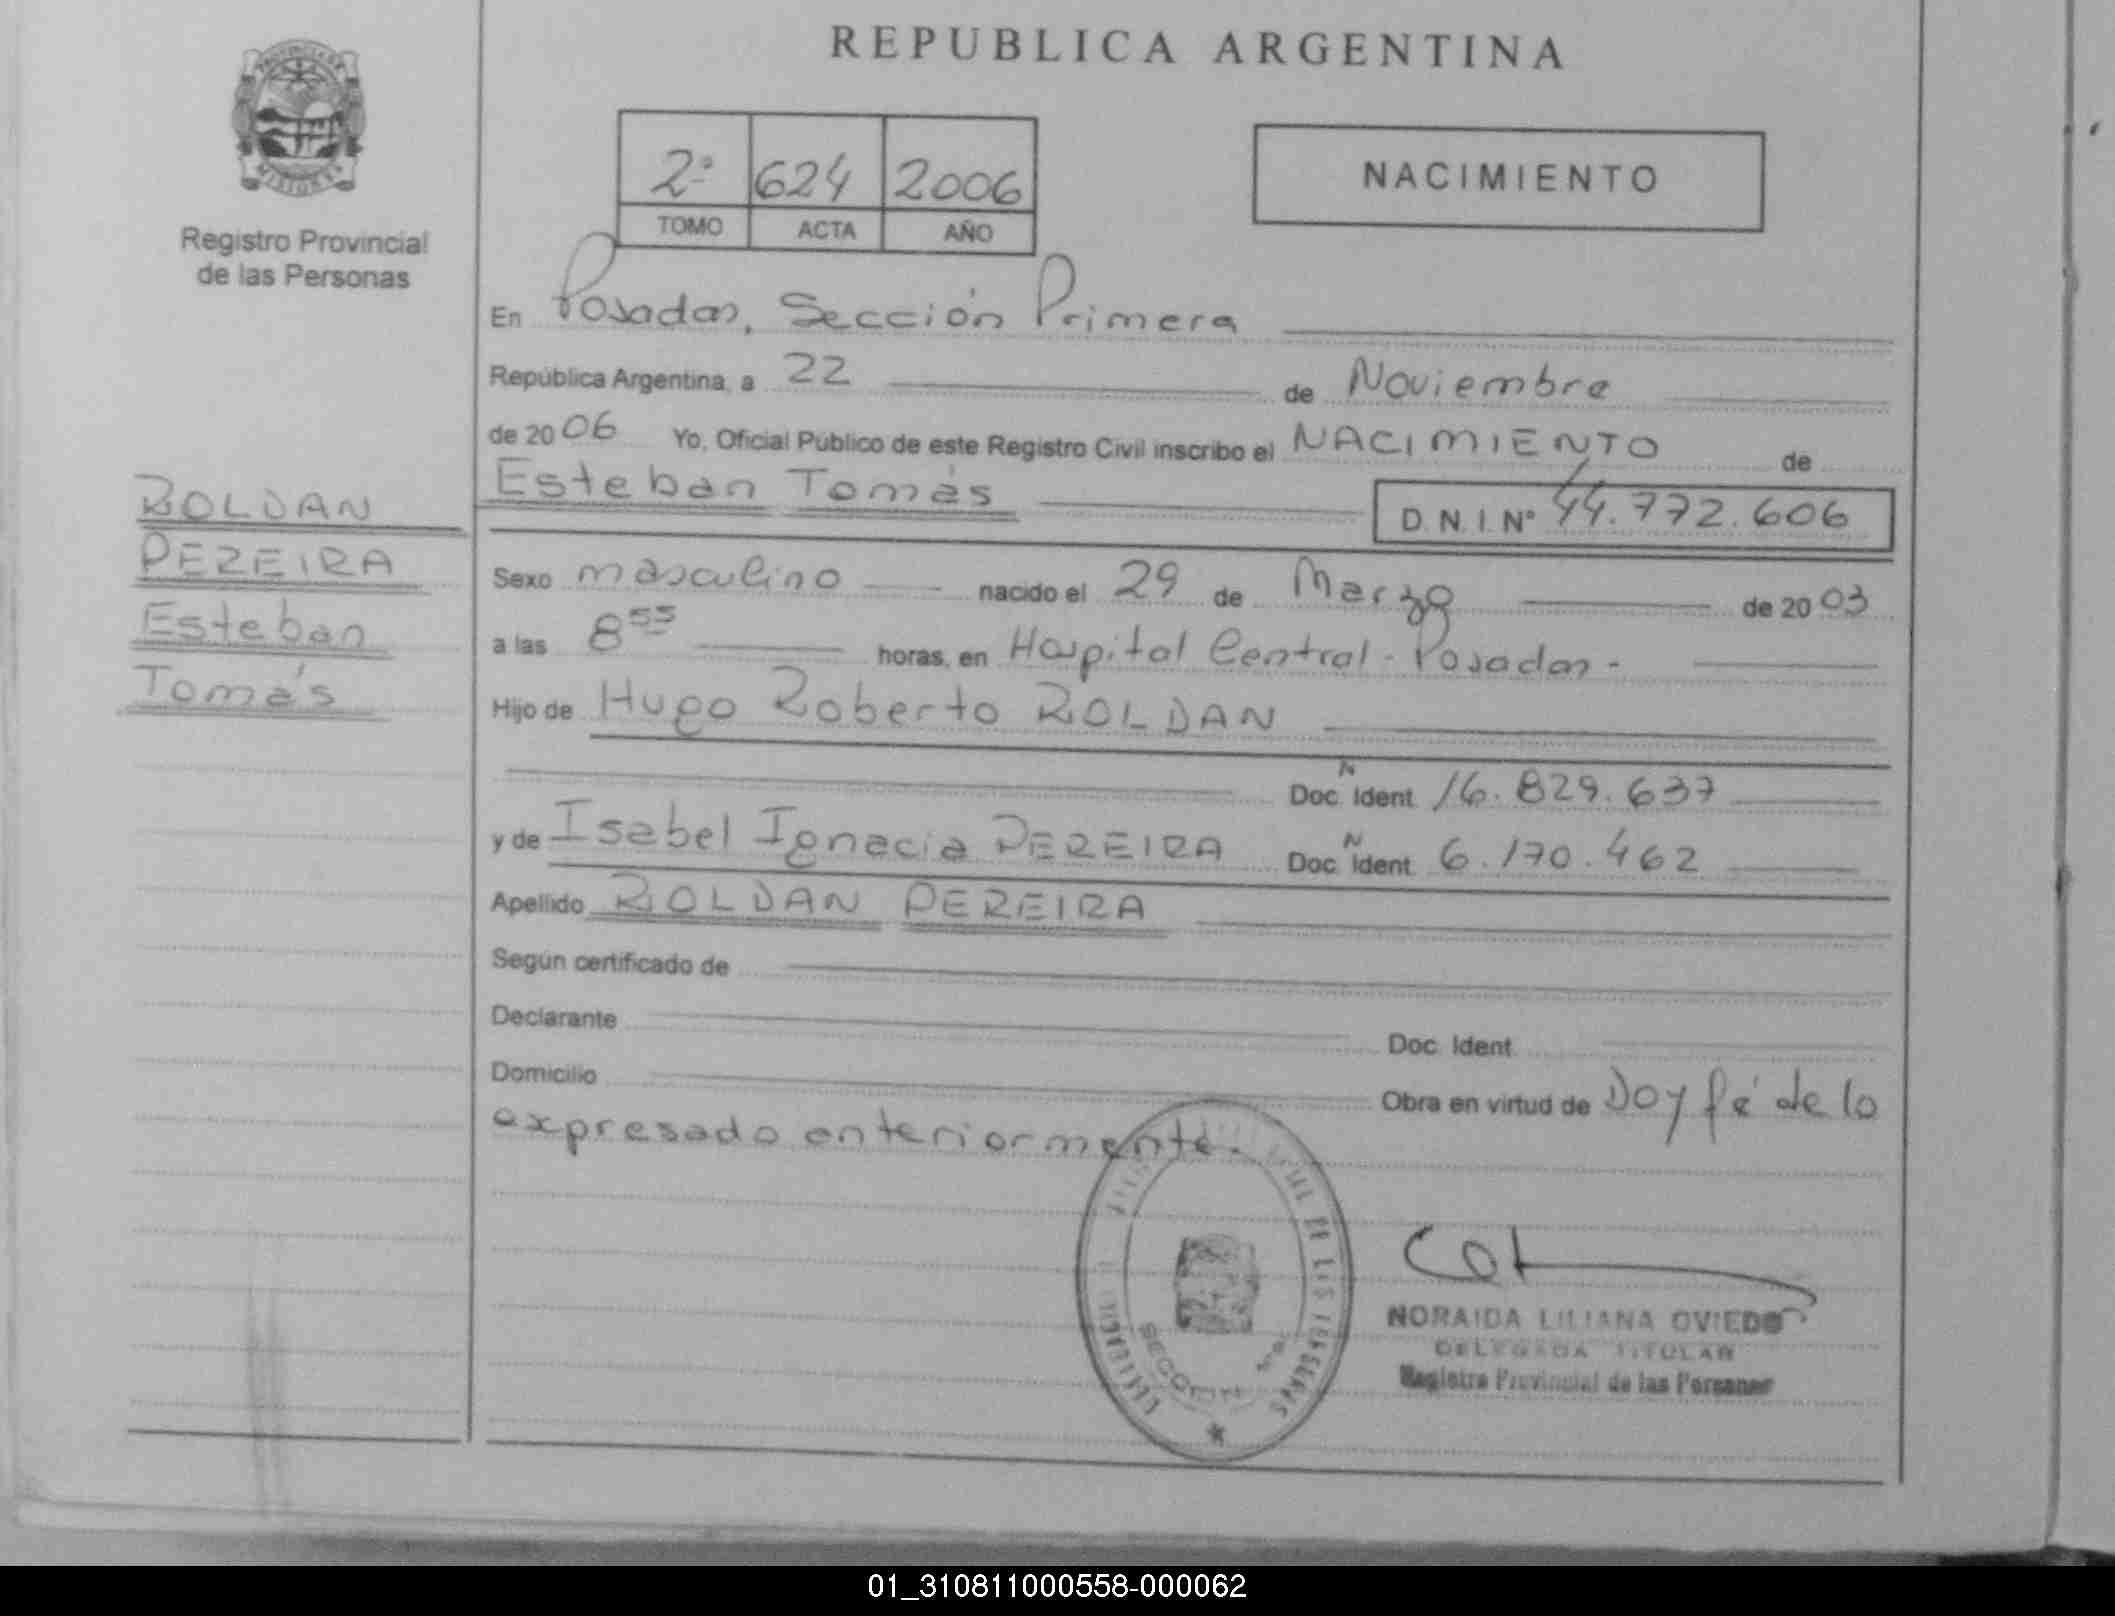 REPUBLICA ARGENTINA
PROVINCIA DE
MISIONES
Registro Provincial
de las Personas
2º 624 2006
TOMO ACTA AÑO
NACIMIENTO
En Posadas, Sección Primera
República Argentina, a 22 de Noviembre
de 2006 Yo, Oficial Público de este Registro Civil inscribo el NACIMIENTO de
Esteban Tomás D.N.I.Nº 44.772.606
ROLDAN
PEREIRA
Esteban
Tomás
Sexo masculino nacido el 29 de Marzo de 2003
a las 8 55 horas, en Hospital Central - Posadas -
Hijo de Hugo Roberto ROLDAN
Doc. N Ident. 16.829.637
y de Isabel Ignacia PEREIRA Doc. N Ident. 6.170.462
Apellido ROLDAN PEREIRA
Según certificado de
Declarante Doc. Ident.
Domicilio Obra en virtud de Doy fé de lo
expresado anteriormente.
DE LAS PERSONAS
NORAIDA LILIANA OVIEDO
DELEGADA TITULAR
Registro Provincial de las Personas
01_310811000558-000062